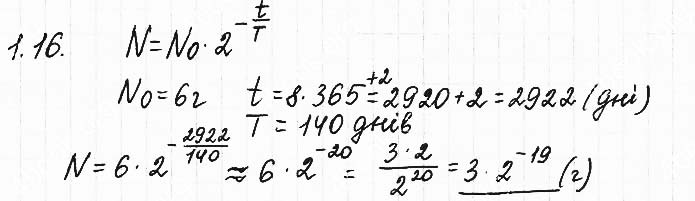 1.16. N = N₀ · 2^(-t/T)
N₀ = 6г t = 8 · 365 +2 = 2920 + 2 = 2922 (дні)
T = 140 днів
N = 6 · 2^(-2922/140) ≈ 6 · 2^(-20) = 3 · 2 / 2^20 = 3 · 2^(-19) (г)